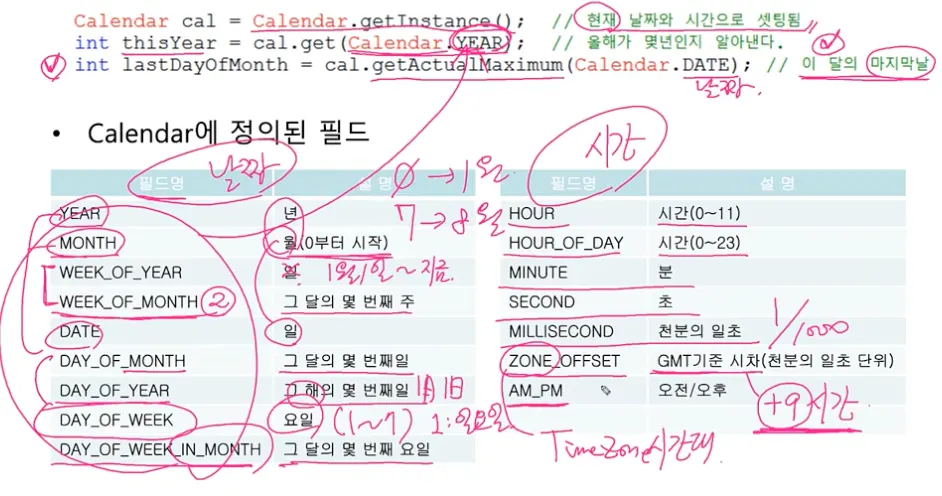 Calendar cal = Calendar.getInstance(); // 현재 날짜와 시간으로 셋팅됨
int thisYear = cal.get(Calendar.YEAR); // 올해가 몇년인지 알아낸다.
int lastDayOfMonth = cal.getActualMaximum(Calendar.DATE); // 이 달의 마지막날
날짜.
• Calendar에 정의된 필드
날짜
시간
필드명 설 명
0→1월
필드명 설 명
YEAR 년
7→8월
HOUR 시간(0~11)
MONTH 월(0부터 시작)
HOUR_OF_DAY 시간(0~23)
WEEK_OF_YEAR
1월1일~지금.
MINUTE 분
WEEK_OF_MONTH ② 그 달의 몇 번째 주
SECOND 초
DATE 일
MILLISECOND 천분의 일초
1/1000
DAY_OF_MONTH 그 달의 몇 번째일
ZONE_OFFSET GMT기준 시차(천분의 일초 단위)
DAY_OF_YEAR 그 해의 몇 번째일 1月1日
AM_PM 오전/오후
+9시간
DAY_OF_WEEK 요일 (1~7) 1:일요일
DAY_OF_WEEK_IN_MONTH 그 달의 몇 번째 요일
TimeZone시간대.